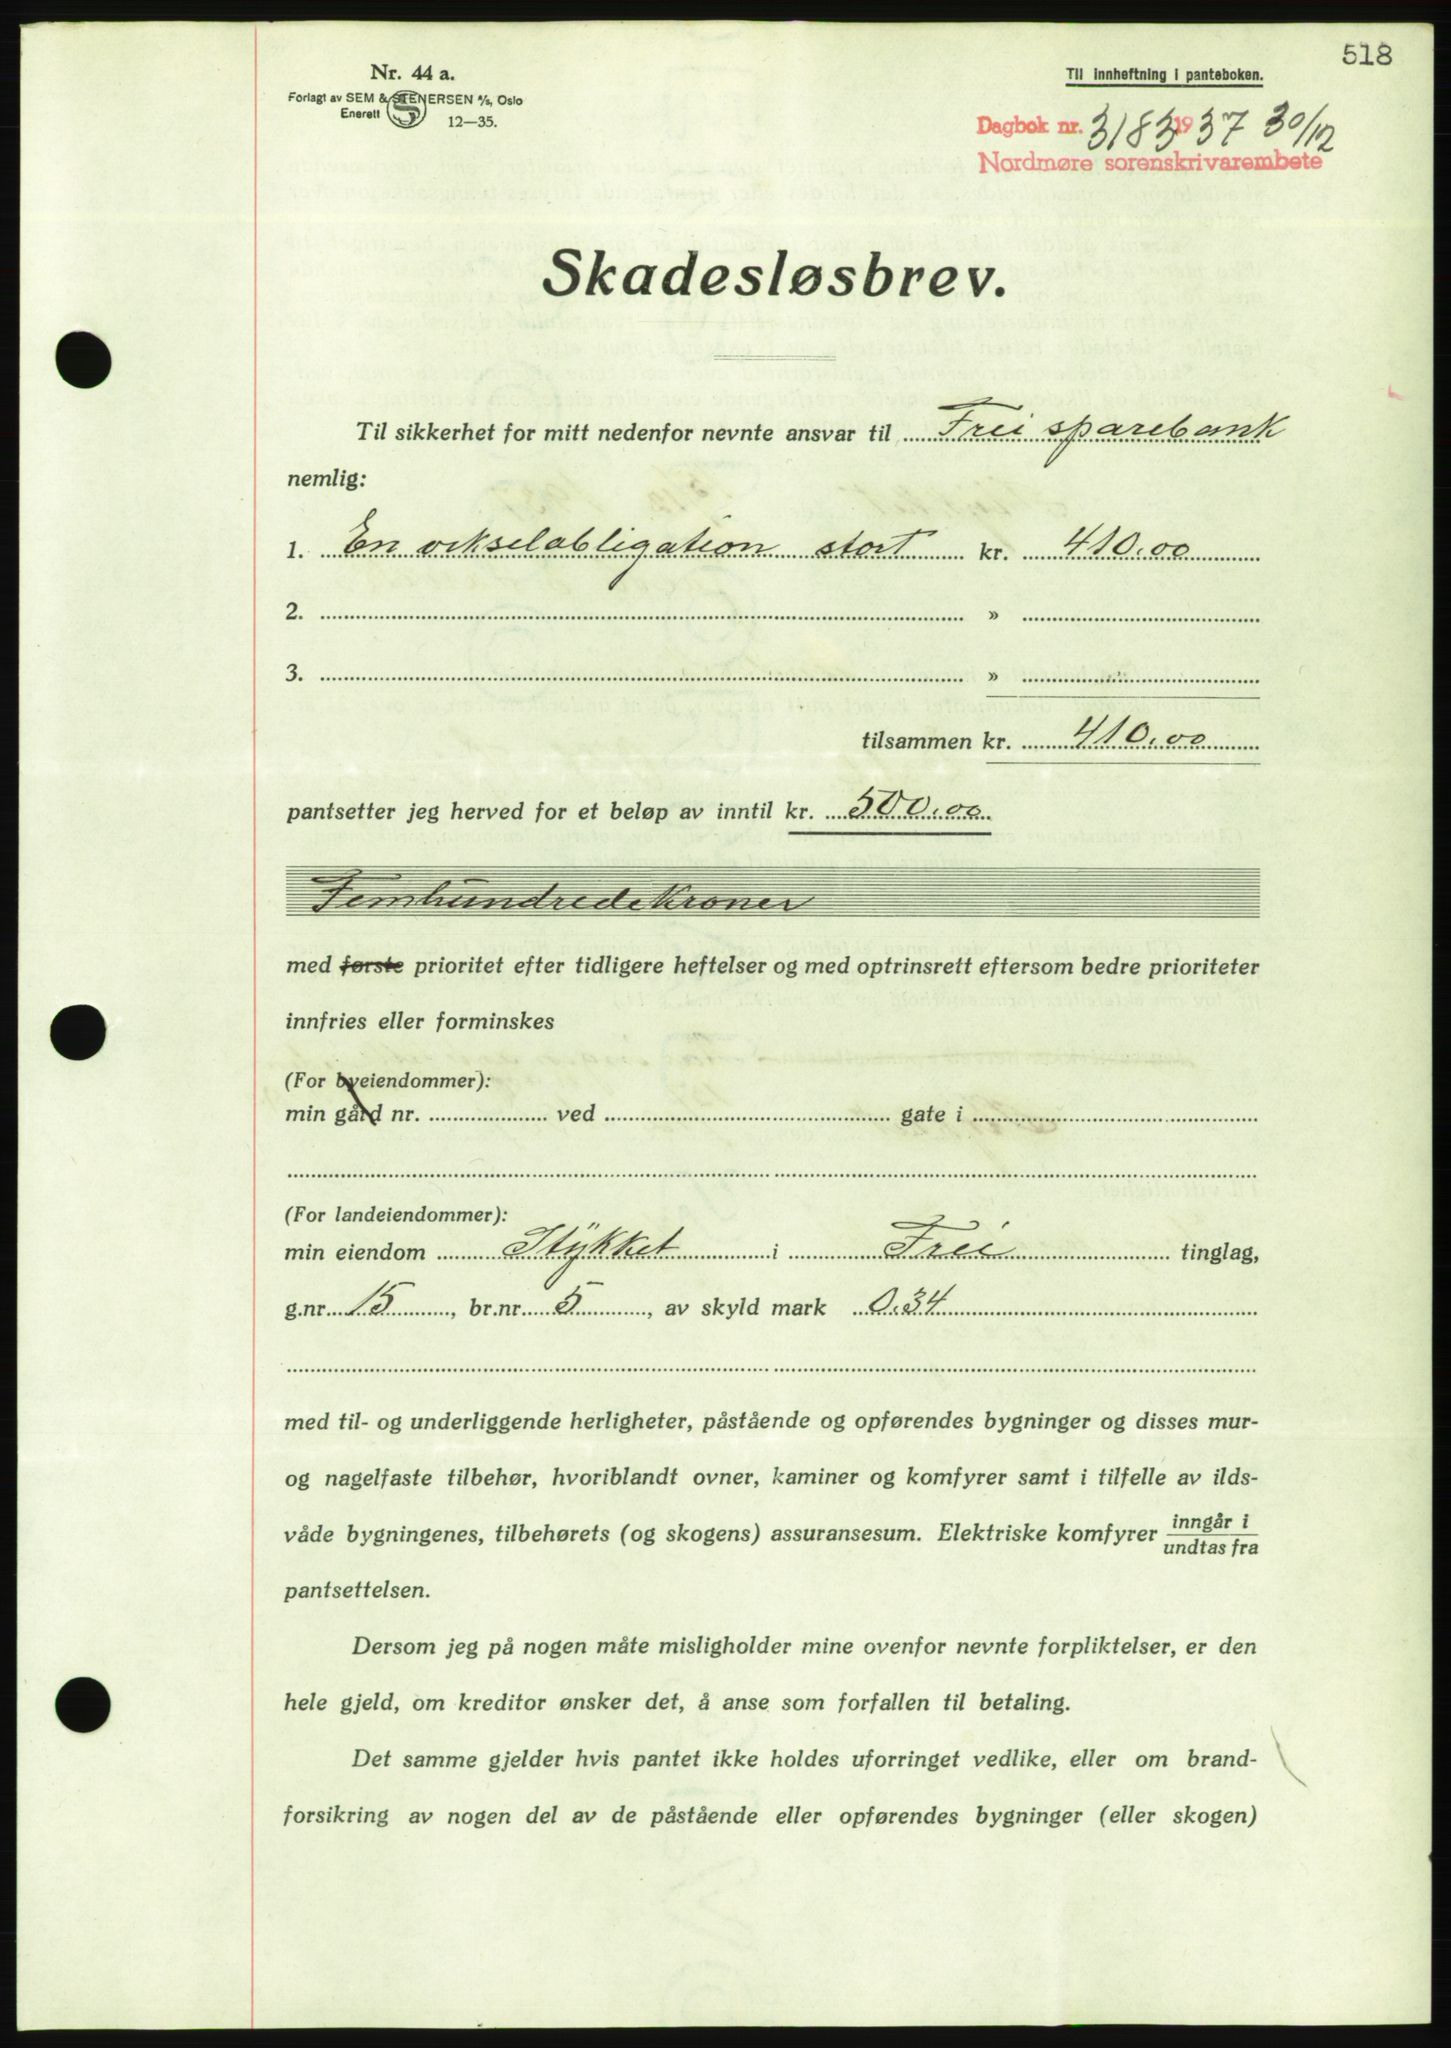 518
Nr. 44 a.
Forlagt av SEM & STENERSEN A/S, Oslo
Enerett S 12—35.
Til innheftning i panteboken.
Dagbok nr. 3183 1937 30/12
Nordmøre sorenskrivarembete
Skadesløsbrev.
Til sikkerhet for mitt nedenfor nevnte ansvar til Frei sparebank
nemlig:
1. En vekselobligation stort kr. 410.00
2. »
3. »
tilsammen kr. 410.00
pantsetter jeg herved for et beløp av inntil kr. 500.00
Femhundredekroner
med første prioritet efter tidligere heftelser og med optrinsrett eftersom bedre prioriteter
innfries eller forminskes
(For byeiendommer):
min gård nr. ved gate i
(For landeiendommer):
min eiendom Stykket i Frei tinglag,
g.nr. 15, br.nr. 5, av skyld mark 0.34
med til- og underliggende herligheter, påstående og opførendes bygninger og disses mur-
og nagelfaste tilbehør, hvoriblandt ovner, kaminer og komfyrer samt i tilfelle av ilds-
våde bygningenes, tilbehørets (og skogens) assuransesum. Elektriske komfyrer inngår i
undtas fra
pantsettelsen.
Dersom jeg på nogen måte misligholder mine ovenfor nevnte forpliktelser, er den
hele gjeld, om kreditor ønsker det, å anse som forfallen til betaling.
Det samme gjelder hvis pantet ikke holdes uforringet vedlike, eller om brand-
forsikring av nogen del av de påstående eller opførendes bygninger (eller skogen)